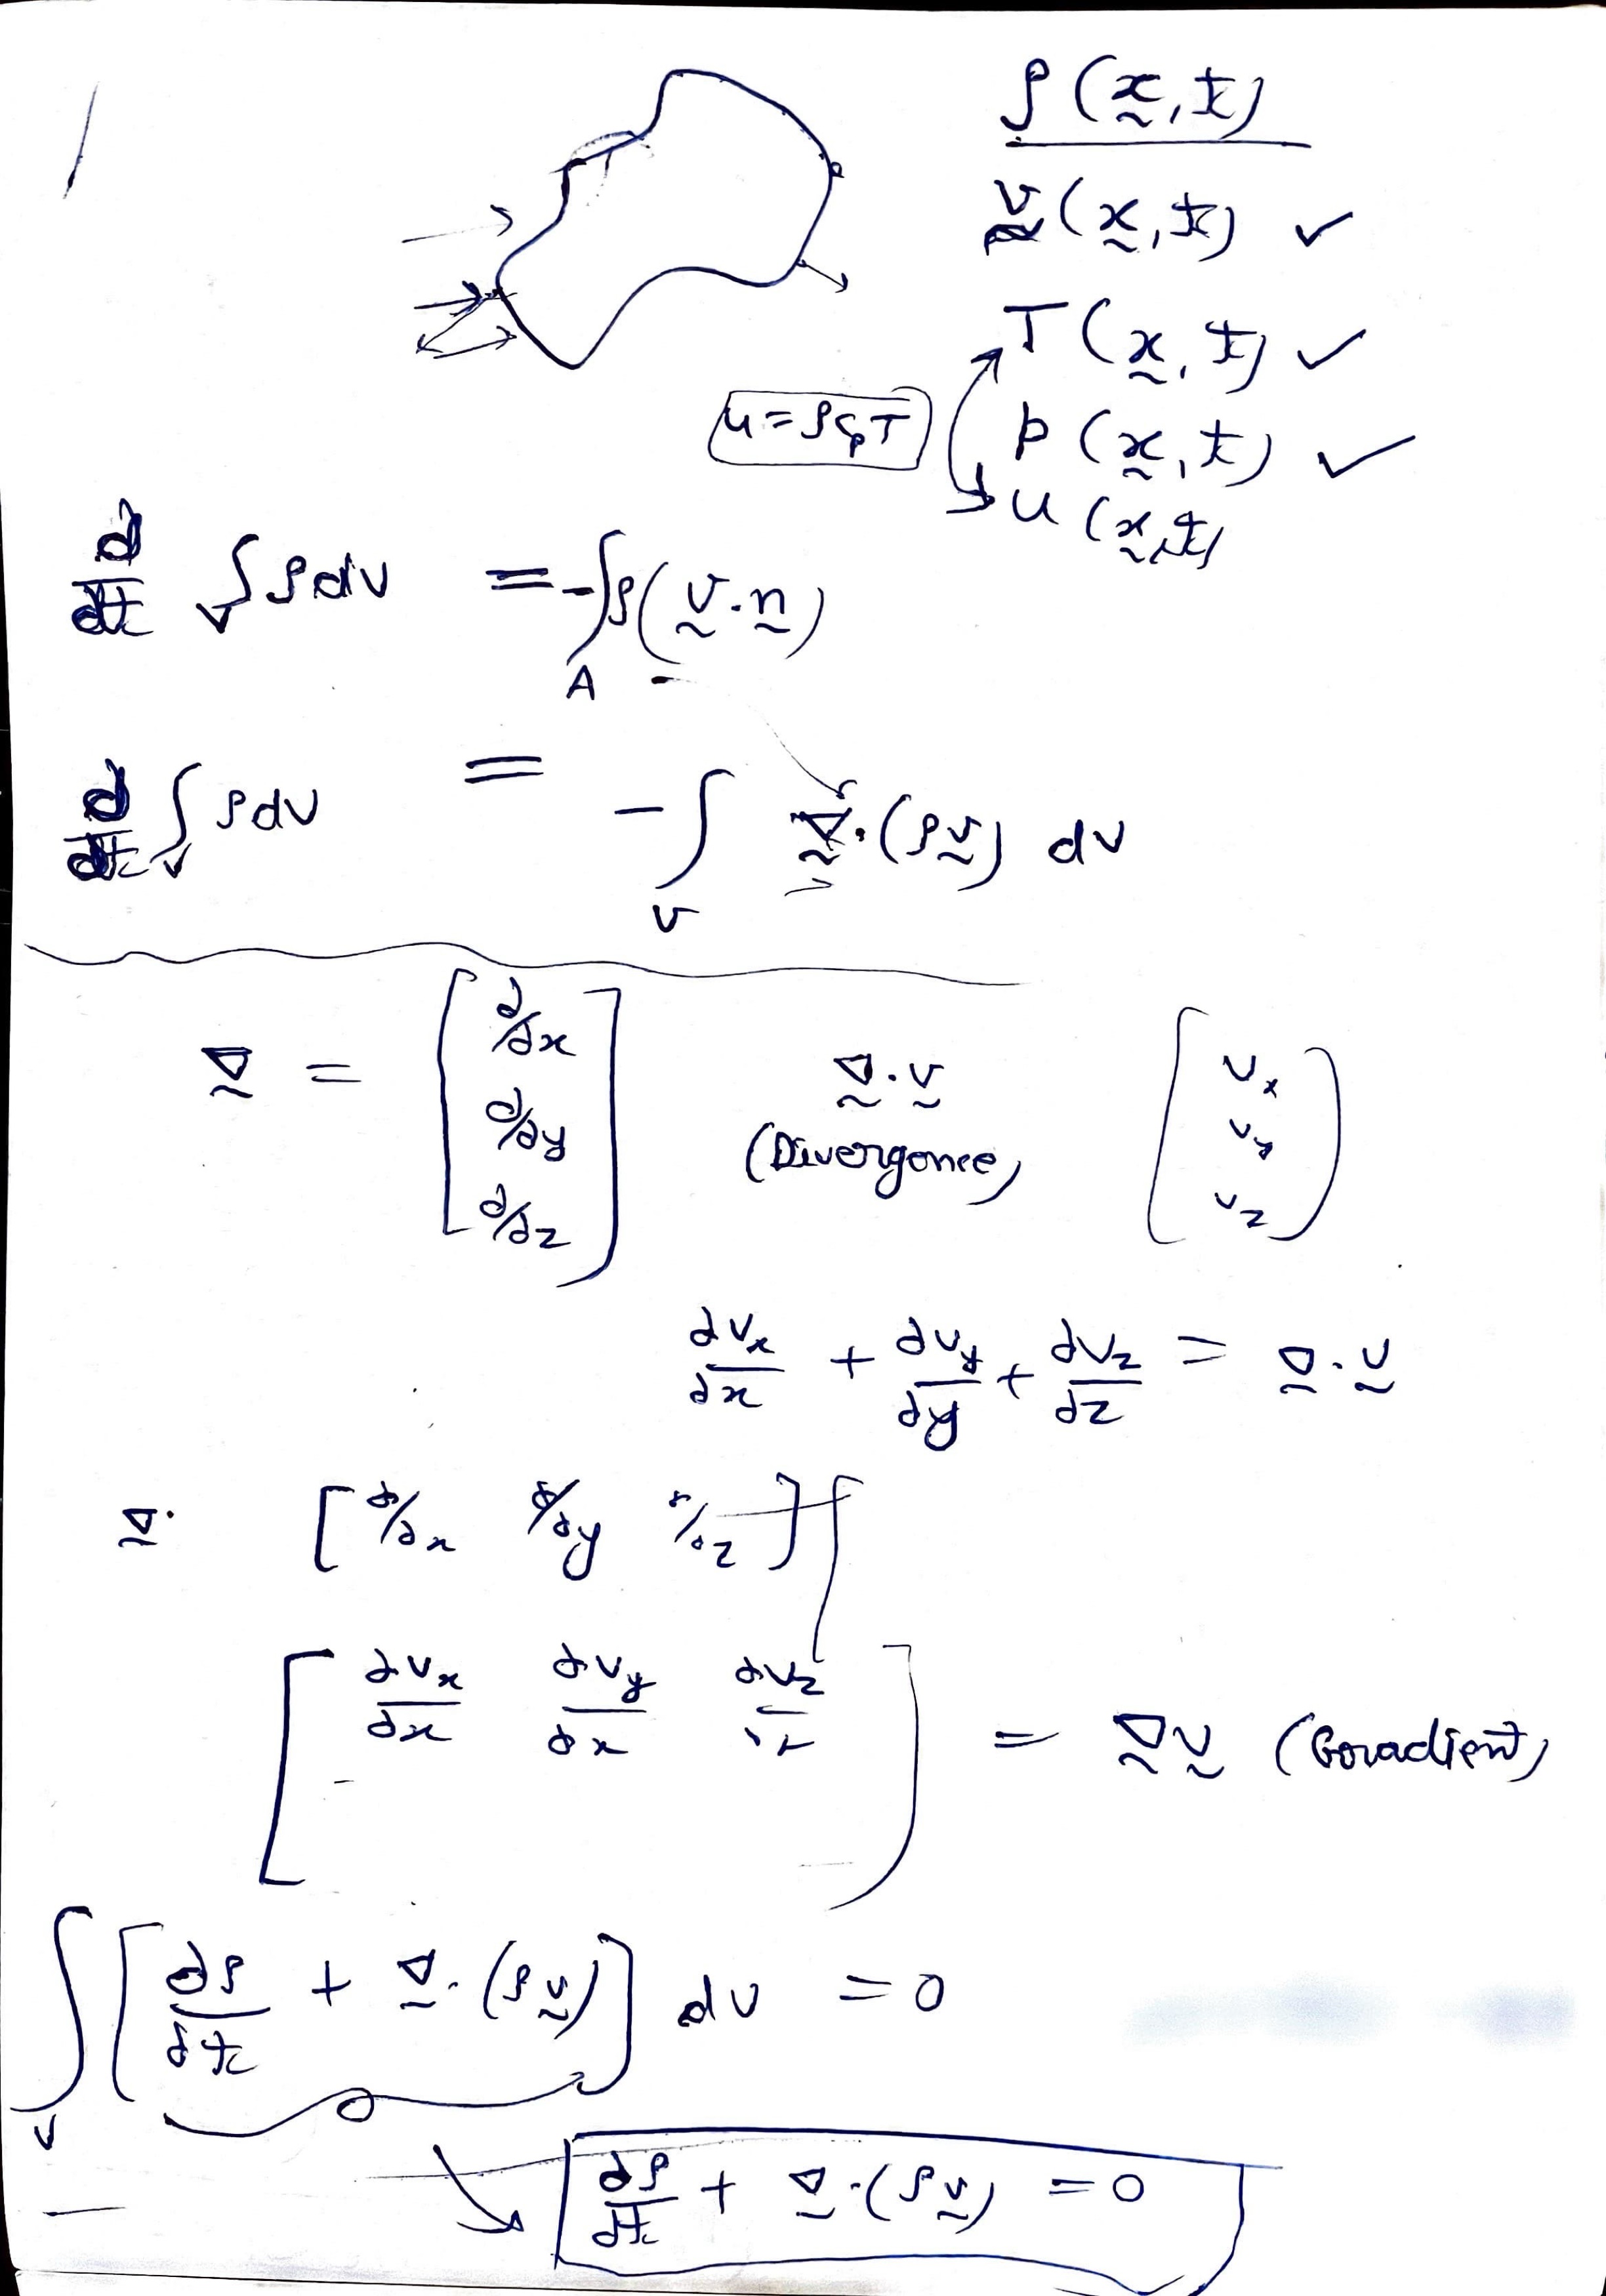 ρ(x̰,t)
v̰(x̰,t) ✓
T(x̰,t) ✓
u=ρcₚT
p(x̰,t) ✓
u(x̰,t)
d/dt ∫_V ρdv = -∫_A ρ(v̰·n̰)
d/dt ∫_V ρdv = -∫_V ∇̰·(ρv̰) dv
∇̰ = [∂/∂x ∂/∂y ∂/∂z] ∇̰·v̰ [vₓ v_y v_z]
(Divergence)
∂vₓ/∂x + ∂v_y/∂y + ∂v_z/∂z = ∇̰·v̰
∇̰· [∂/∂x ∂/∂y ∂/∂z] [
[∂vₓ/∂x ∂v_y/∂x ∂v_z/ ] = ∇̰v̰ (Gradient)
∫_V [∂ρ/∂t + ∇̰·(ρv̰)] dv = 0
0
∂ρ/∂t + ∇̰·(ρv̰) = 0